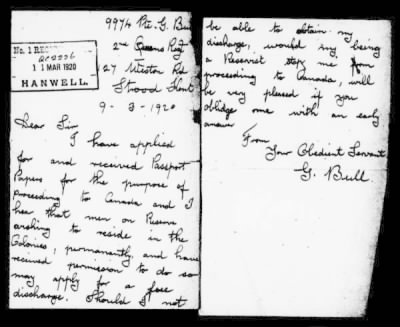 9974 Pte. G. Bull
2nd Queens Regt
127 Weston Rd
Strood Kent
No. 1 REC
11 MAR 1920
HANWELL
9 - 3 - 1920
Dear Sir
I have applied
for and received Passport
Papers for the purpose of
proceeding to Canada and I
hear that men on Reserve
wishing to reside in the
Colonies, permanantly, and have
received permission to do so
may apply for a free
discharge. Should I not
be able to obtain my
discharge, would my being
a Reservist stop me from
proceeding to Canada, will
be very pleased if you
oblidge me with an early
answer
From
Your Obedient Servant
G. Bull.